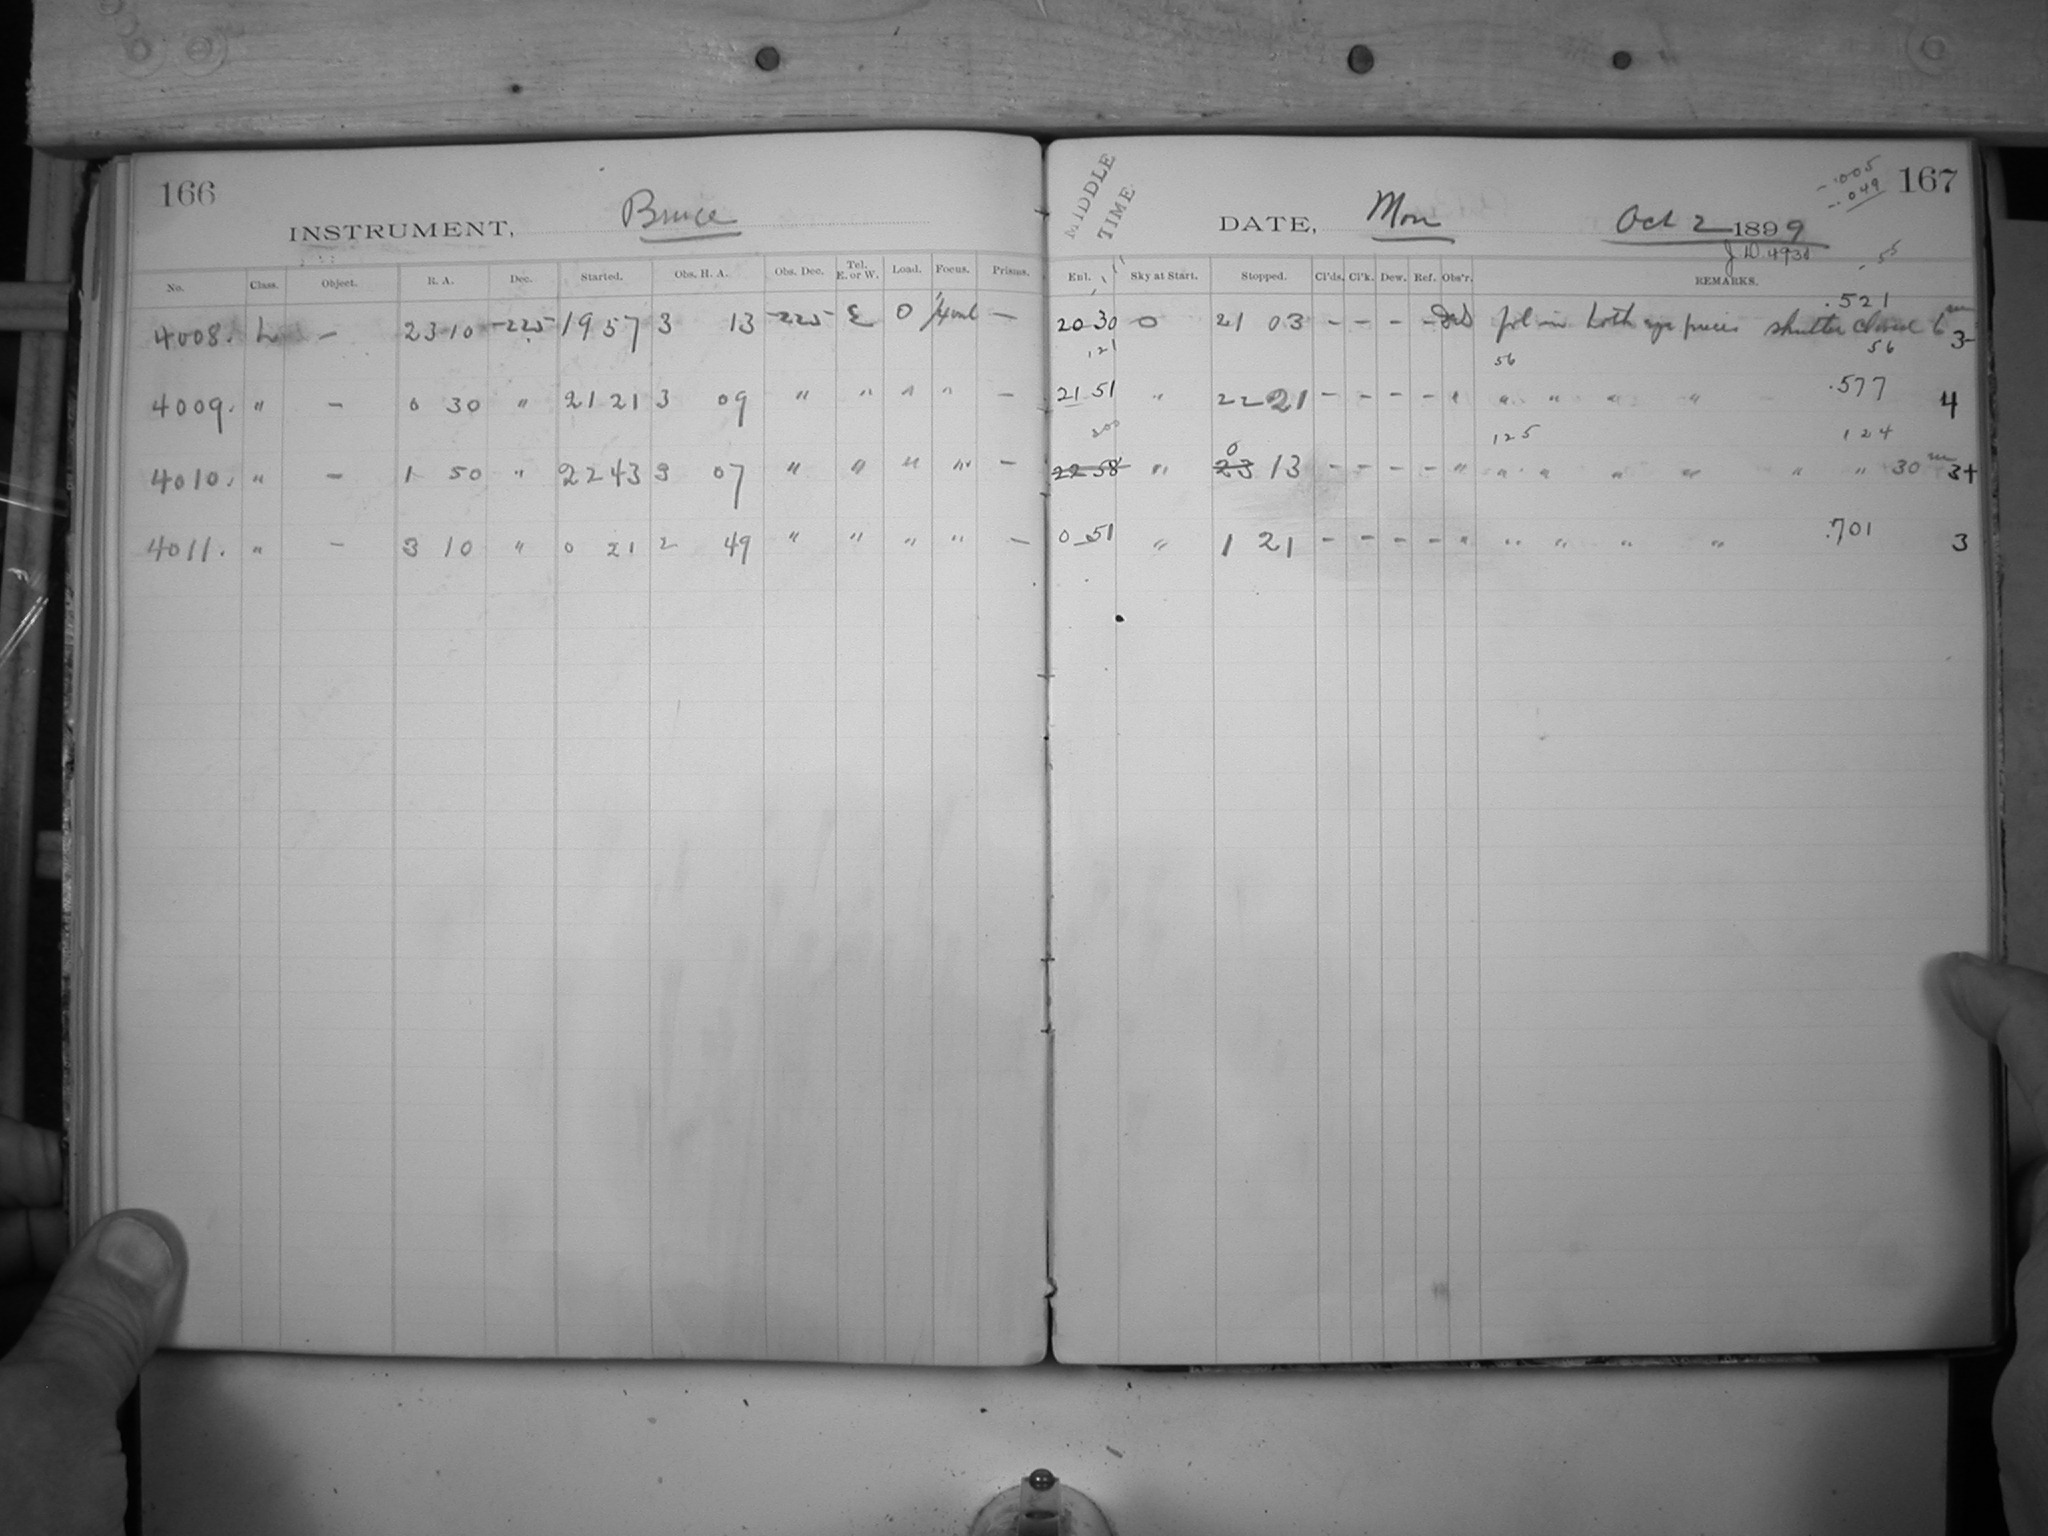 166
INSTRUMENT, Bruce
No. Class. Object. R. A. Dec. Started. Obs. H. A. Obs. Dec. Tel. E. or W. Load. Focus. Prisms.
4008. L — 23 10 -22.5 19 57 3 13 -22.5 E 0 —
4009. " — 0 30 " 21 21 3 09 " " " " —
4010. " — 1 50 " 22 43 3 07 " " " " —
4011. " — 3 10 " 0 21 2 49 " " " " —
MIDDLE TIME
167
-.005
-.049
DATE, Mon Oct 2 1899
J D. 4930
. 55
Enl. Sky at Start. Stopped. Cl'ds. Cl'k. Dew. Ref. Obs'r. REMARKS.
.521
20 30 0 21 03 - - - - in both eye pieces shutter closed 6 m 3-
121 56 56
21 51 " 22 21 - - - - " " " " " .577 4
125 124
22 58 " 23 0 13 - - - - " " " " " " " 30 m 3+
0 51 " 1 21 - - - - " " " " " .701 3